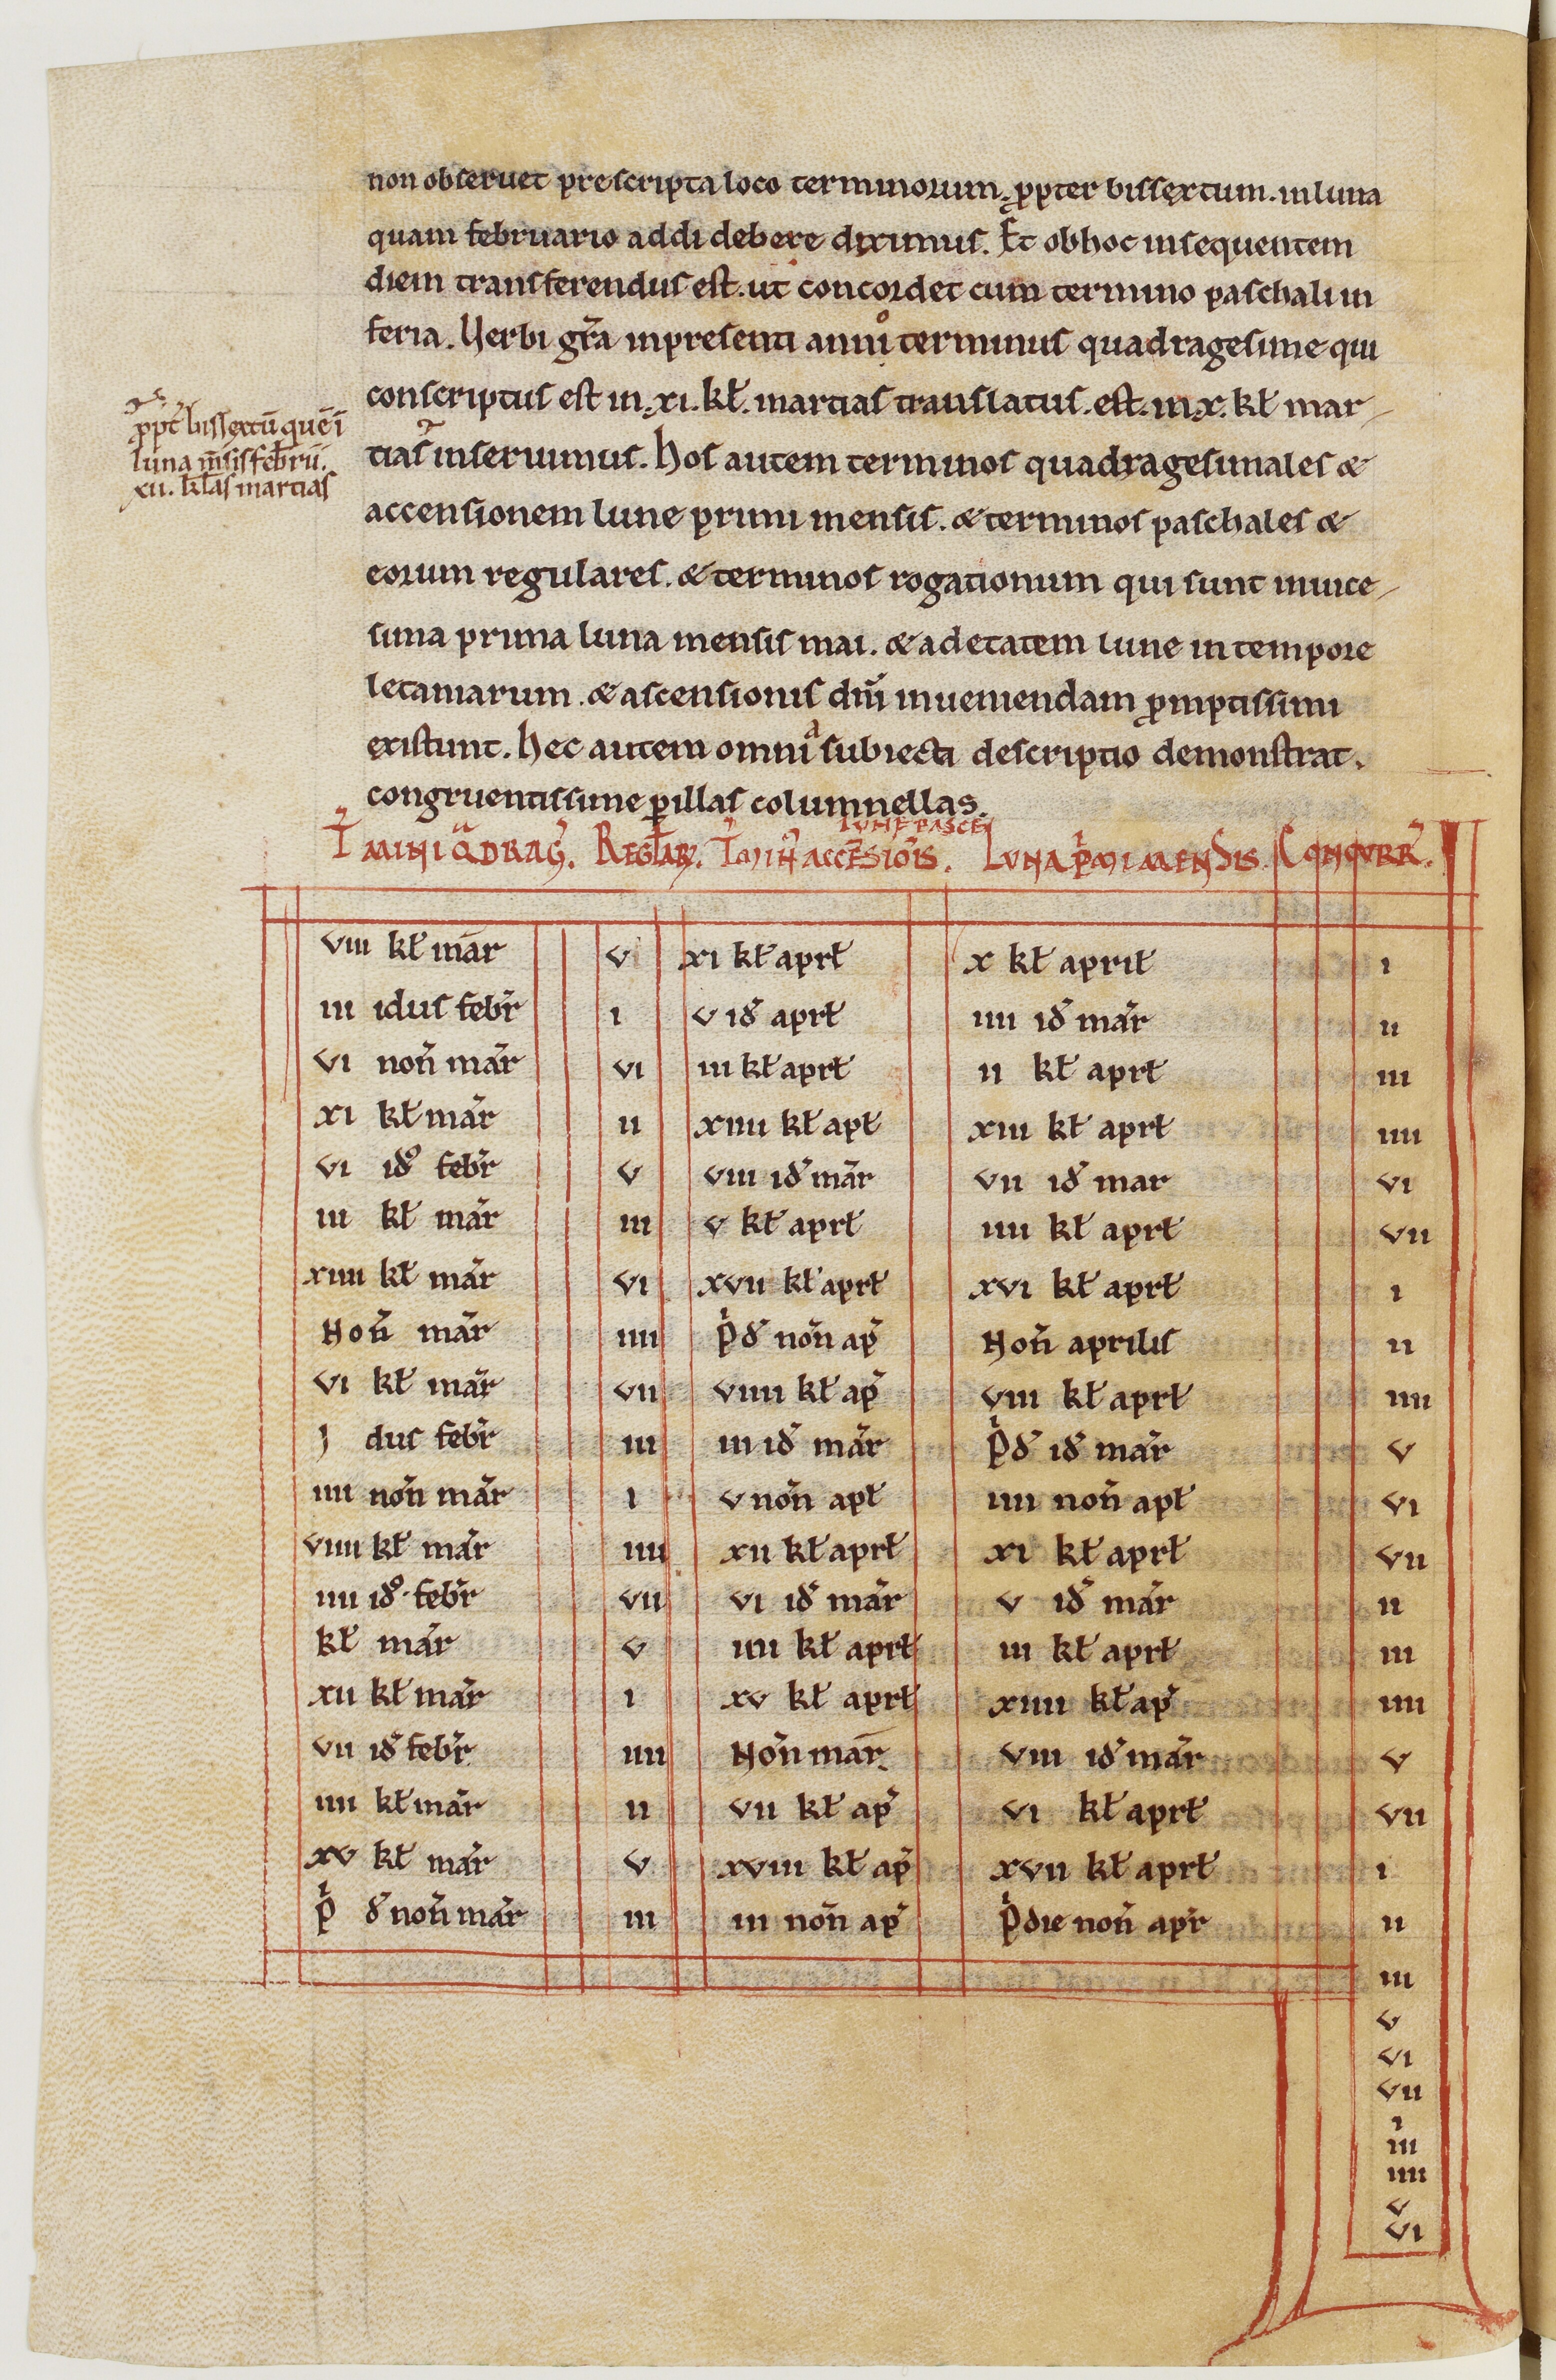 non obseruet prescripta loco terminorum. ꝓpter bissęxtum. in luna
quam februario addi debere diximus. Et ob hoc insequentem
diem transferendus est. ut concordet cum termino paschali in
feria. Verbi gr̄a in presenti anno terminus quadragesime qui
conscriptus est in .xi. kł. martias translatus. est. in .x. kł mar-
tias inseruimus. Hos autem terminos quadragesimales &
accensionem lune primi mensis. & terminos paschales &
eorum regulares. & terminos rogationum qui sunt in uice-
sima prima luna mensis mai. & ad etatem lune in tempore
letaniarum. & ascensionis dn̄i inueniendam ꝓmptissimi
existunt. Hec autem omnia subiecti descriptio demonstrat.
congruentissime ꝑ illas columnellas.
ꝓpt̄ bissęxtū quē ī
luna m̄sis febrū.
xii. kłas martias
LUNE PASCE
T̄MINI QͣDRAG̃. REGŁAR̃. T̄MIN̄ ACCĒSIOĪS. LUNA PͥMI MENSIS. CONCURR̃.
viii kł mar̄ v xi kł aprł x kł aprił i
iii idus febr̃ i v id̃ aprł iiii id̃ mar̃ ii
vi non̄ mar̃ vi iii kł aprł ii kł aprł iii
xi kł mar̃ ii xiiii kł apł xiii kł aprł iiii
vi id̃ febr̃ v viii id̃ mar̃ vii id̃ mar vi
iii kł mar̃ iii v kł aprł iiii kł aprł vii
xiiii kł mar̃ vi xvii kł aprł xvi kł aprł i
Non̄ mar̃ iiii pͥd̃ non̄ ap̃ Non̄ aprilis ii
vi kł mar̃ vii viiii kł ap̃ viii kł aprł iiii
I dus febr̃ iii iii id̃ mar̃ pͥd̃ id̃ mar̃ v
iiii non̄ mar̃ i v non̄ apł iiii non̄ apł vi
viiii kł mar̃ iiii xii kł aprł xi kł aprł vii
iiii id̃. febr̃ vii vi id̃ mar̃ v id̃ mar̃ ii
kł mar̃ v iiii kł aprł iii kł aprł iii
xii kł mar̃ i xv kł aprł xiiii kł ap̃ iiii
vii id̃ febr̃ iiii Non̄ mar̄. viii id̃ mar̃ v
iiii kł mar̃ ii vii kł ap̃ vi kł aprł vii
xv kł mar̃ v xviii kł ap̃ xvii kł aprł i
pͥ d̃ non̄ mar̃ iii iii non̄ ap̃ pͥdie non̄ apr̃ ii
iii
v
vi
vii
i
iii
iiii
v
vi